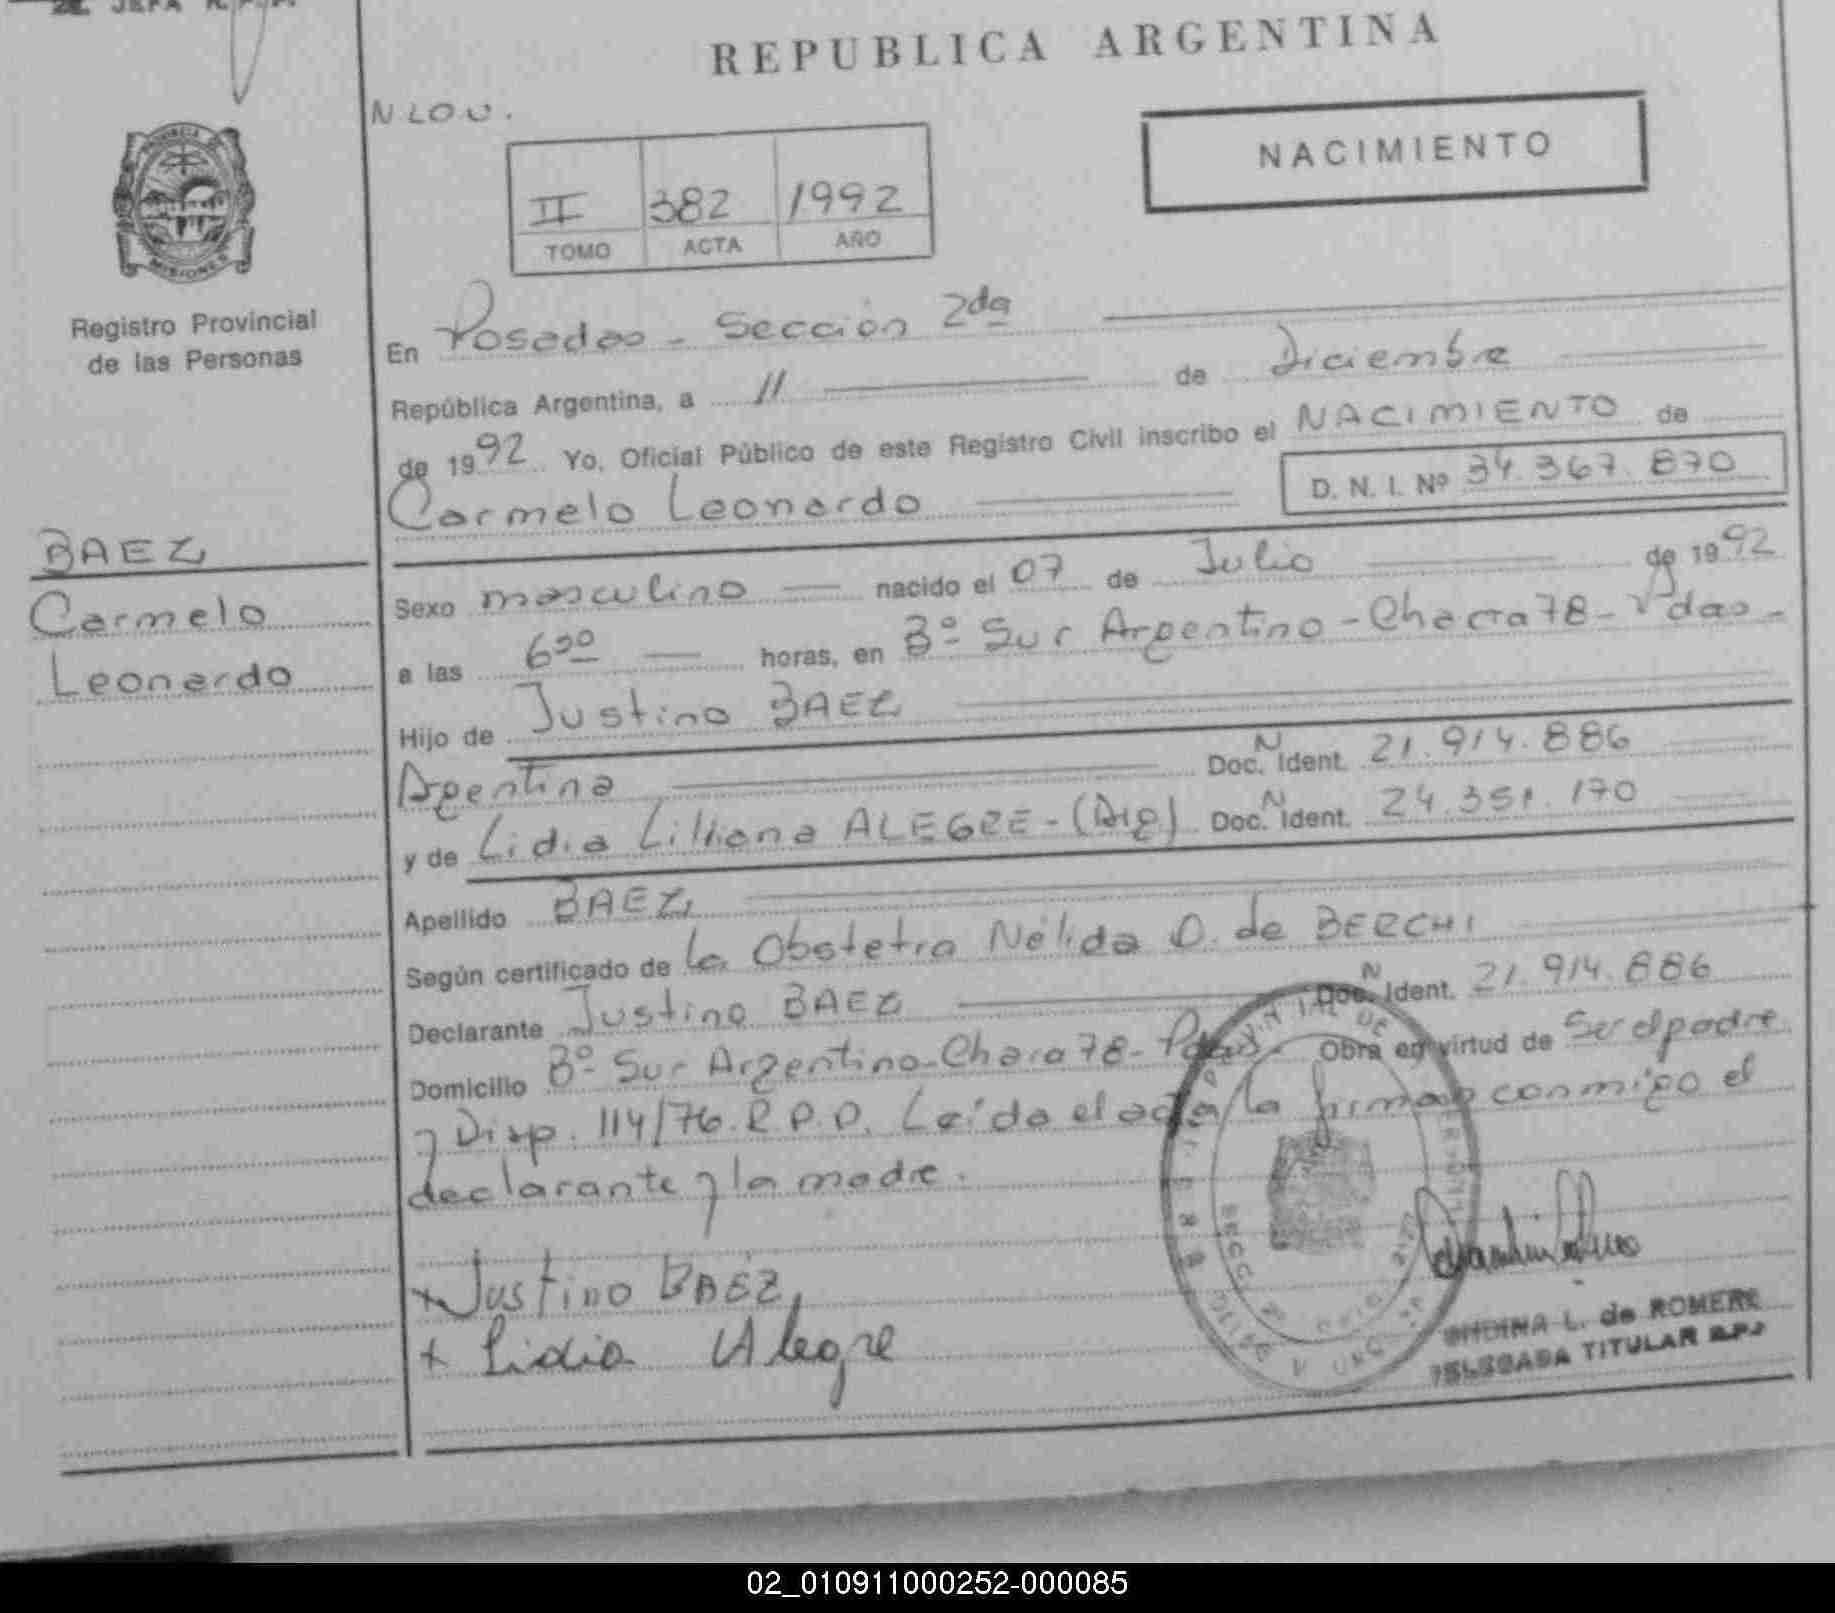 JEFA R.P.P.
REPUBLICA ARGENTINA
NACIMIENTO
II 382 1992
TOMO ACTA AÑO
PROVINCIA DE
MISIONES
Registro Provincial
de las Personas
BAEZ
Carmelo
Leonardo
En Posadas - Sección 2da
República Argentina, a 11 de Diciembre
de 1992 Yo, Oficial Público de este Registro Civil inscribo el NACIMIENTO de
Carmelo Leonardo D. N. I. Nº 34.367.870
Sexo masculino nacido el 07 de Julio de 1992
a las 6 horas, en Bº Sur Argentino - Chacra 78 - Pdas -
Hijo de Justino BAEZ
Argentina Doc. N Ident. 21.914.886
y de Lidia Liliana ALEGRE - (Arg) Doc. N Ident. 24.351.170
Apellido BAEZ
Según certificado de la Obstetra Nélida O. de BERCHI
Declarante Justino BAEZ Doc. N Ident. 21.914.886
Domicilio Bº Sur Argentino - Chara 78 - Pdas. Obra en virtud de Ser el padre
y Disp. 114/76. R.P.P. Leída el acta la firman conmigo el
declarante y la madre.
+ Justino BAEZ
+ Lidia Alegre
L. de ROMERO
DELEGADA TITULAR R.P.P.
02_010911000252-000085